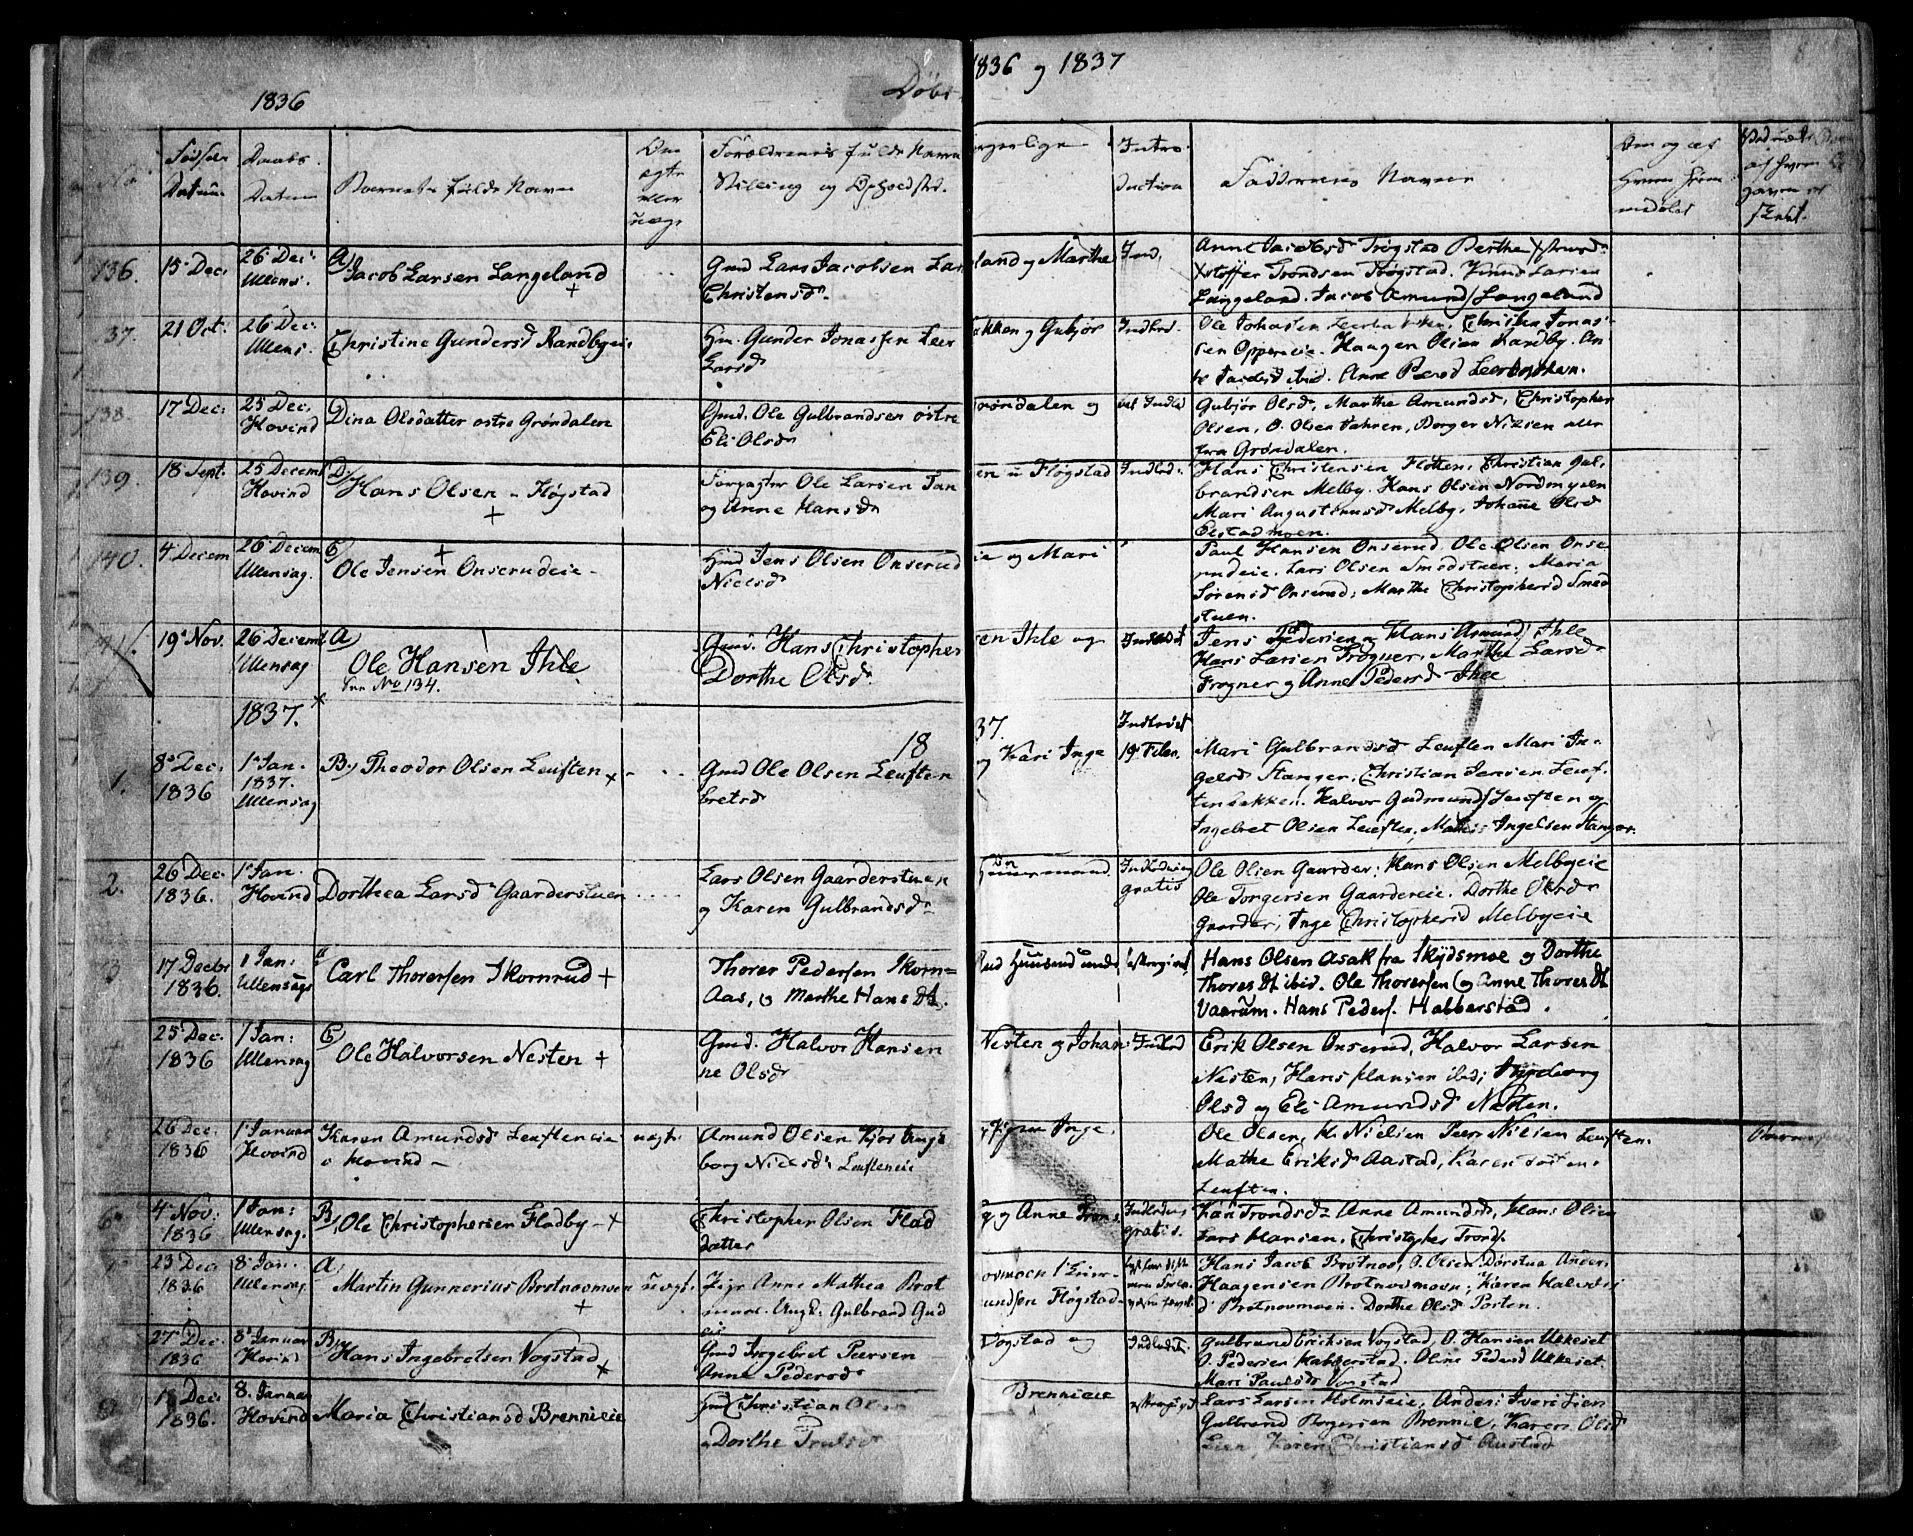 1836
Døbte 1836 og 1837
No
Fødsels Datum
Daabs Datum
Barnets fulde Navn
Om ægte eller uægt
Forældrenes fulde Navn Stilling og Opholdsted.
Intro duction
Faddernes Navne
136. 15 Dec: 26 Dec: Ullens. A) Jacob Larsen Langeland +
Gmd Lars Jacobsen Langeland og Marthe Christensdr
Ind.
Anne Jacobsd Trøgstad Berthe
Xstoffer Trondsen Trøgstad. Larsen
Langeland. Jacob Amunds Langeland
137. 21 Oct. 26 Dec: Ullens. Christine Gundersd Randbyeie
Hm. Gunder Jonassen Leerbakken og Gubjør Larsd
Indled.
Ole Johasen Leerbakken, Christen Jonas-
sen Opperaeie. Haagen Olsen Randby. An-
ibid. Anne Leerbakken.
138 17 Dec: 25 Dec. Hovind Dina Olsdatter østre Grøndalen
Gmd. Ole Gulbrandsen østre Grøndalen og Eli Olsdr
Indled
Gubjør Olsd, Marthe Amundsd, Christopher
Olsen, O. Olsen Borger Nilsen alle
fra Grøndalen.
139. 18 Sept. 25 Decemb Hovind D) Hans Olsen - Fløgstad +
Forpagter Ole Larsen u Fløgstad og Anne Hansdr
Indled.
Hans Christensen Fløtten, Christian Gul-
brandsen Melby. Hans Olsen Nordmyren
Mari Augustinusd Melby, Johanne Olsd
Elstadmoen.
140. 4 Decem 26 Decem Ullensag. C) Ole Jensen Onserudeie - +
Hmd Jens Olsen Onserudeie og Mari Nielsd
Paul Hansen Onserud. Ole Olsen Onse
rudeie. Lars Olsen Smedstuen. Maria
Sørensd Onserud, Marthe Christophersd Smed
stuen.
141. 19 Nov. 26 Decemb Ullensag A) Ole Hansen Ihle
See No 134.
Gmd. Hans Christophersen Ihle og Dorthe Olsdr
Indledet
Jens Pedersen og Hans Amund Ihle
Hans Larsen Frogner, Marthe Larsdr
Frogner og Anne Pedersd Ihle
1837. 1837.
1. 8 Dec. 1836 1 Jan. 1837. Ullensag B) Theodor Olsen Leuften +
Gmd Ole Olsen Leuften og Kari Ingebretsd
Indledet 19 Febr.
Mari Gulbrandsd Leuften Mari In-
gelsd Stanger, Christian Jensen Leuf-
tenbakken. Halvor Gudmunds Leuften og
Ingebret Olsen Leuften, Ingelsen Stanger.
2. 26 Dec. 1836. 1 Jan. Hovind Dorthea Larsd Gaarderstuen
Lars Olsen Gaarderstuen og Karen Gulbrandsdr
Huusmand
Indledning gratis
Ole Olsen Gaarder; Hans Olsen Melbyeie
Ole Torgersen Gaardereie. Dorthe Olsdr
Gaarder; Inge Christophersd Melbyeie
3 17 Decbr 1836. 1 Jan: Ullensags Carl Thorersen Skornrud +
Thorer Pedersen Skorn= Aas, og Marthe Hans Dt.
Rud Huusmand
Hans Olsen Asak fra Skydsmoe og Dorthe
Thores Dt ibid. Ole Thorersen og Anne Thores Dt
Vaarum. Hans Peders. Habberstad.
4 25 Dec. 1836 1 Jan: Ullensag C) Ole Halvorsen Nesten +
Gmd. Halvor Hansen Nesten og Johanne Olsdr
Indled
Erik Olsen Onserud, Halvor Larsen
Nesten, Hans Hansen ibid; Ingeborg
Olsd og Eli Amundsd Nesten.
5 26 Dec. 1836 1 Januar Hovind Karen Amundsd Leufteneie i Hovind -
uægte
Amund Olsen Ingeborg Nielsdr Leufteneie
Ole Olsen, H. Nielsen Peer Nilsen Leuften.
Mathe Eriksd Aastad, Karen
Leuften.
6 4 Nov: 1836 1 Jan: Ullensag. B) Ole Christophersen Fladby - +
Christopher Olsen Fladby og Anne Trons datter
Indledning gratis.
Kari Trondsdr Anne Amundsd, Hans Olsen
Lars Hansen, Christopher Tronds.
7 23 Dec 1836 8 Jan. Ullensag. A) Martin Gunnerius Brotnovmoen +
uægt.
Pige Anne Mathea Brotnovmoen Ungk: Gulbrand Gudmundsen Fløgstadeie
Hans Jacob Brotnov, O. Olsen Dørstua Anders
Haagensen Brotnovmoen; Karen Halvors
d Brotnovmoen. Dorthe Olsd Porten.
27 Dec. 1836 8 Januar Hovind B) Hans Ingebretsen Vogstad +
Gmd Ingebret Peersen Vogstad og Anne Pedersdr
Indledet.
Gulbrand Eriksen Vogstad, O. Hansen Ukkeset
O. Pedersen Habberstad. Oline Pedersd Ukkeset
Mari Paulsdr Vogstad
9 18 Dec: 1836. 8. Januar Hovind Maria Christiansd Brennieie
Hmd Christian Olsen Brennieie og Dorthe Trulsdr
Lars Larsen Holmseie, Anders Ivers Lien
Gulbrand Borgersen Brennie, Karen Olsd
Lien, Karen Christiansd Austad